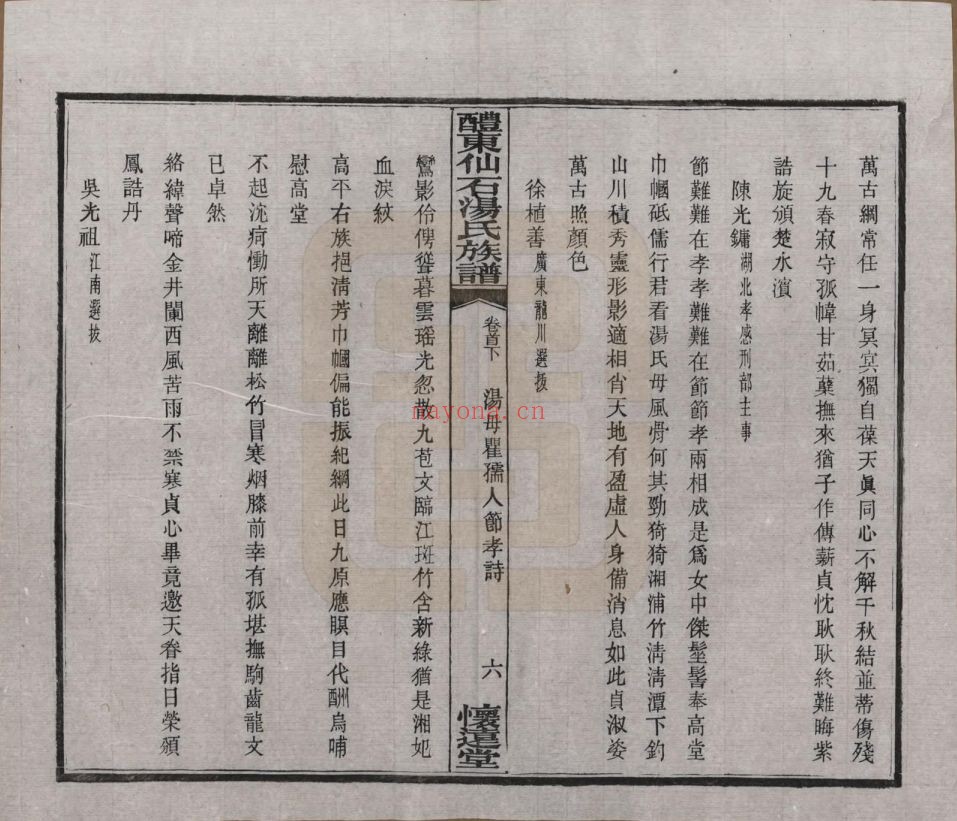 萬古綱常任一身冥冥獨自葆天眞同心不解千秋結並蒂傷殘
十九春寂守孤幃甘茹蘗撫來猶子作傳薪貞忱耿耿終難晦紫
誥旋頒楚水濱
陳光鏞湖北孝感刑部主事
節難難在孝孝難難在節節孝兩相成是爲女中傑髽髻奉高堂
巾幗砥儒行君看湯氏母風骨何其勁猗猗湘浦竹淸淸潭下釣
山川積秀靈形影適相肖天地有盈虛人身備消息如此貞淑姿
萬古照顏色
徐植善廣東龍川選拔
醴東仙石湯氏族譜
卷首下
湯母瞿孺人節孝詩
六
懷遠堂
鸞影伶俜聳暮雲瑶光忽散九苞文臨江斑竹含新綠猶是湘妃
血淚紋
高平右族挹淸芳巾幗偏能振紀綱此日九原應瞑目代酬烏哺
慰高堂
不起沈疴慟所天離離松竹冒寒烟膝前幸有孤堪撫駒齒龍文
已卓然
絡緯聲啼金井闌西風苦雨不禁寒貞心畢竟邀天眷指日榮頒
鳳誥丹
吳光祖江南選拔
nayona.cn